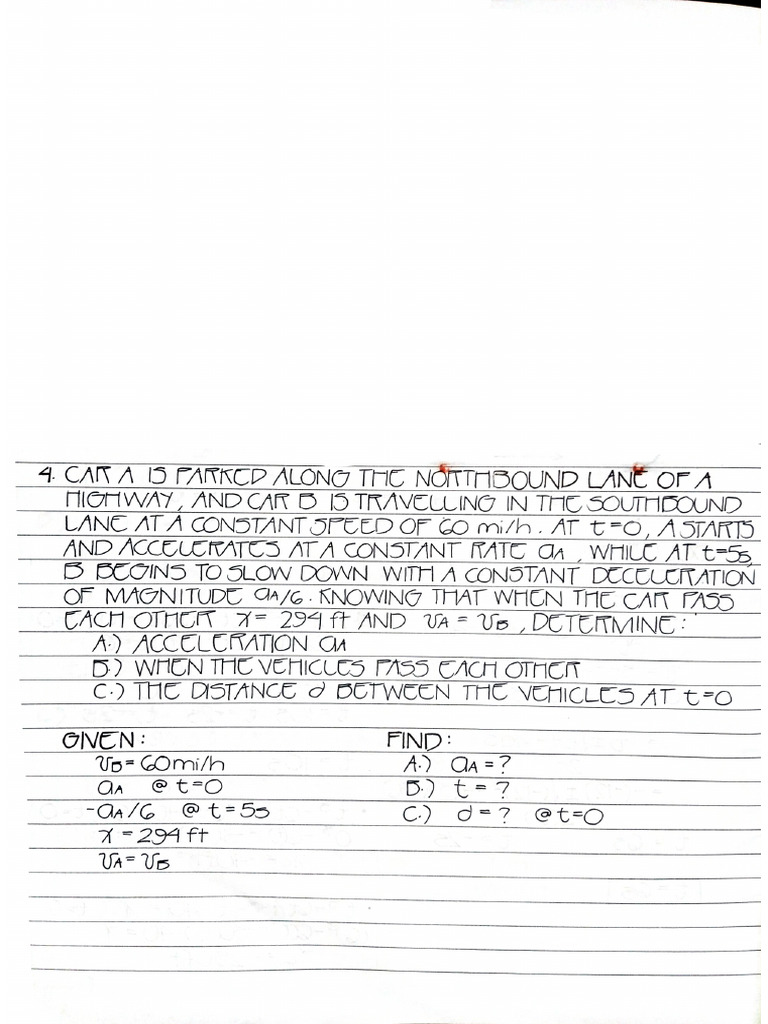 4. CAR A IS PARKED ALONG THE NORTHBOUND LANE OF A
HIGHWAY, AND CAR B IS TRAVELLING IN THE SOUTHBOUND
LANE AT A CONSTANT SPEED OF 60 mi/h. AT t=0, A STARTS
AND ACCELERATES AT A CONSTANT RATE aA, WHILE AT t=5s,
B BEGINS TO SLOW DOWN WITH A CONSTANT DECELERATION
OF MAGNITUDE aA/6. KNOWING THAT WHEN THE CAR PASS
EACH OTHER x= 294 ft AND vA = vB, DETERMINE:
A.) ACCELERATION aA
B.) WHEN THE VEHICLES PASS EACH OTHER
C.) THE DISTANCE d BETWEEN THE VEHICLES AT t=0
GIVEN:
vB = 60mi/h
aA @ t=0
-aA/6 @ t=5s
x = 294 ft
vA = vB
FIND:
A.) aA = ?
B.) t = ?
C.) d = ? @t=0